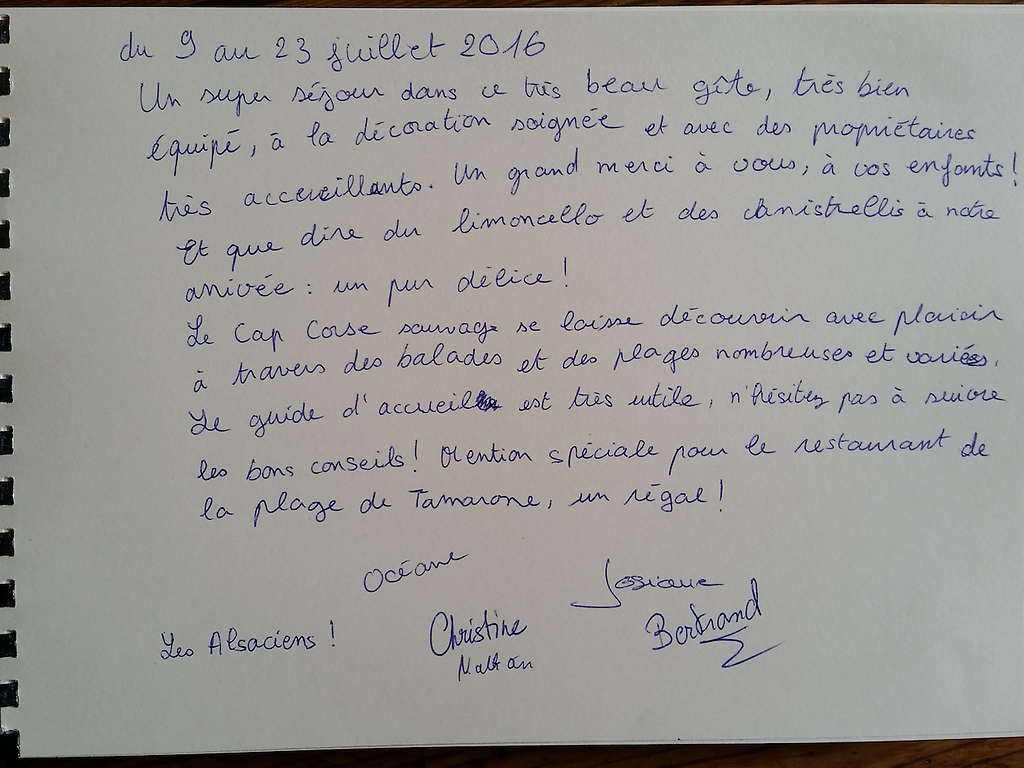 du 9 au 23 juillet 2016
Un super séjour dans ce très beau gîte, très bien
équipé, à la décoration soignée et avec des propriétaires
très accueillants. Un grand merci à vous, à vos enfants !
Et que dire du limoncello et des canistrellis à notre
arrivée : un pur délice !
Le Cap Corse sauvage se laisse découvrir avec plaisir
à travers des balades et des plages nombreuses et variées.
Le guide d'accueil est très utile, n'hésitez pas à suivre
les bons conseils ! Mention spéciale pour le restaurant de
la plage de Tamarone, un régal !
Océane
Josiane
Les Alsaciens !
Christine
Bertrand